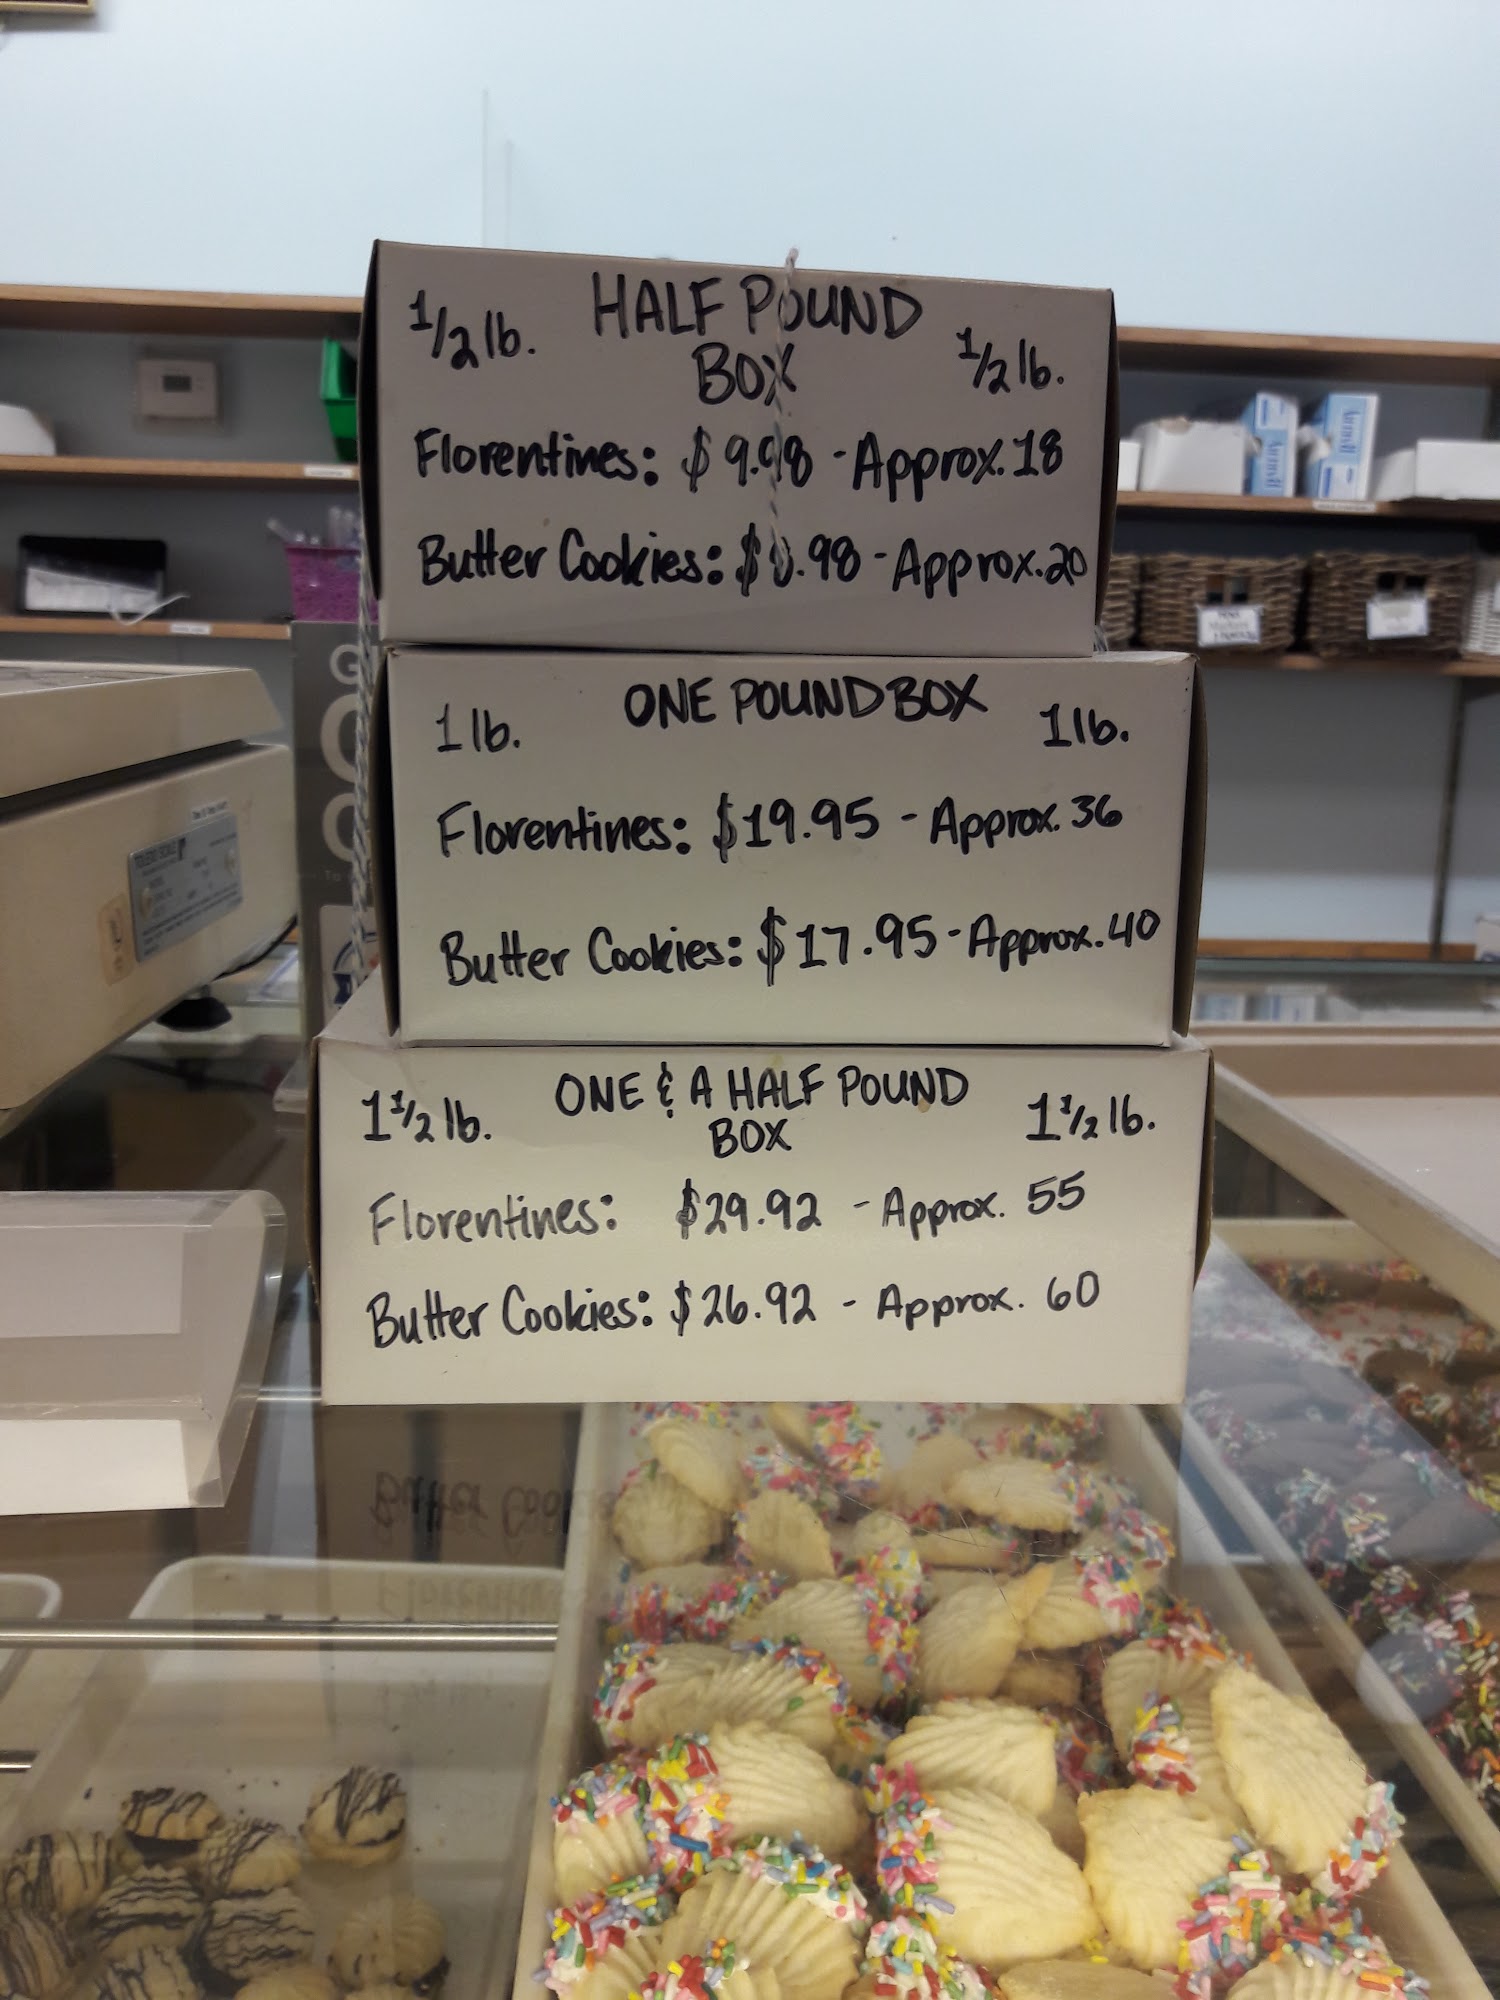 1/2 lb. HALF POUND BOX 1/2 lb.
Florentines: $9.98 - Approx. 18
Butter Cookies: $8.98 - Approx. 20
1 lb. ONE POUND BOX 1 lb.
Florentines: $19.95 - Approx. 36
Butter Cookies: $17.95 - Approx. 40
1 1/2 lb. ONE & A HALF POUND BOX 1 1/2 lb.
Florentines: $29.92 - Approx. 55
Butter Cookies: $26.92 - Approx. 60
TOLEDO SCALE